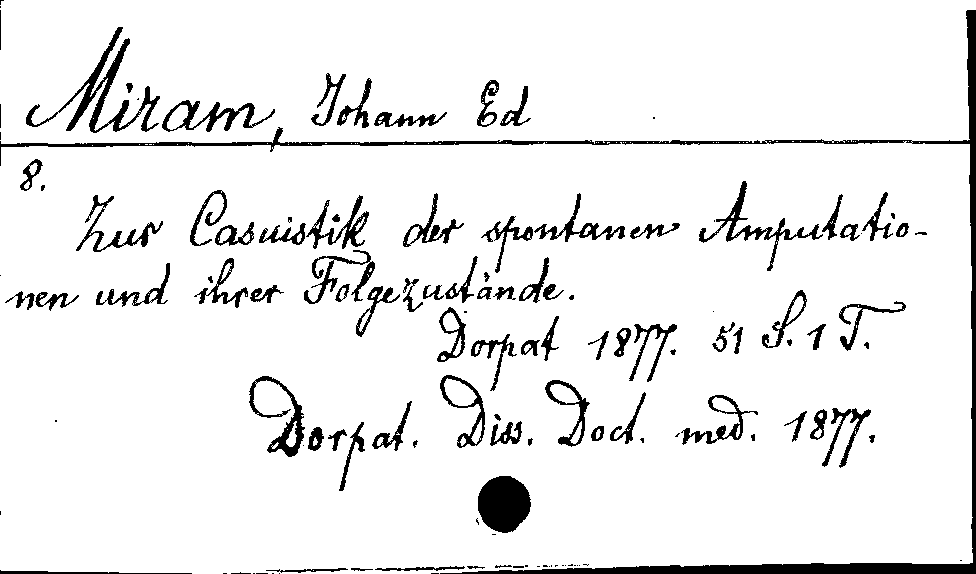 Miram, Johann Ed
8.
Zur Casuistik der spontanen Amputatio-
nen und ihrer Folgezustände.
Dorpat 1877. 51 S. 1 T.
Dorpat. Diss. Doct. med. 1877.